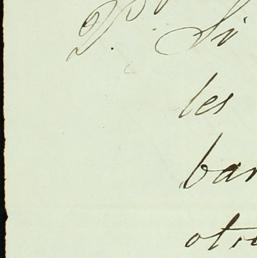 P. Si
les
bar
otr